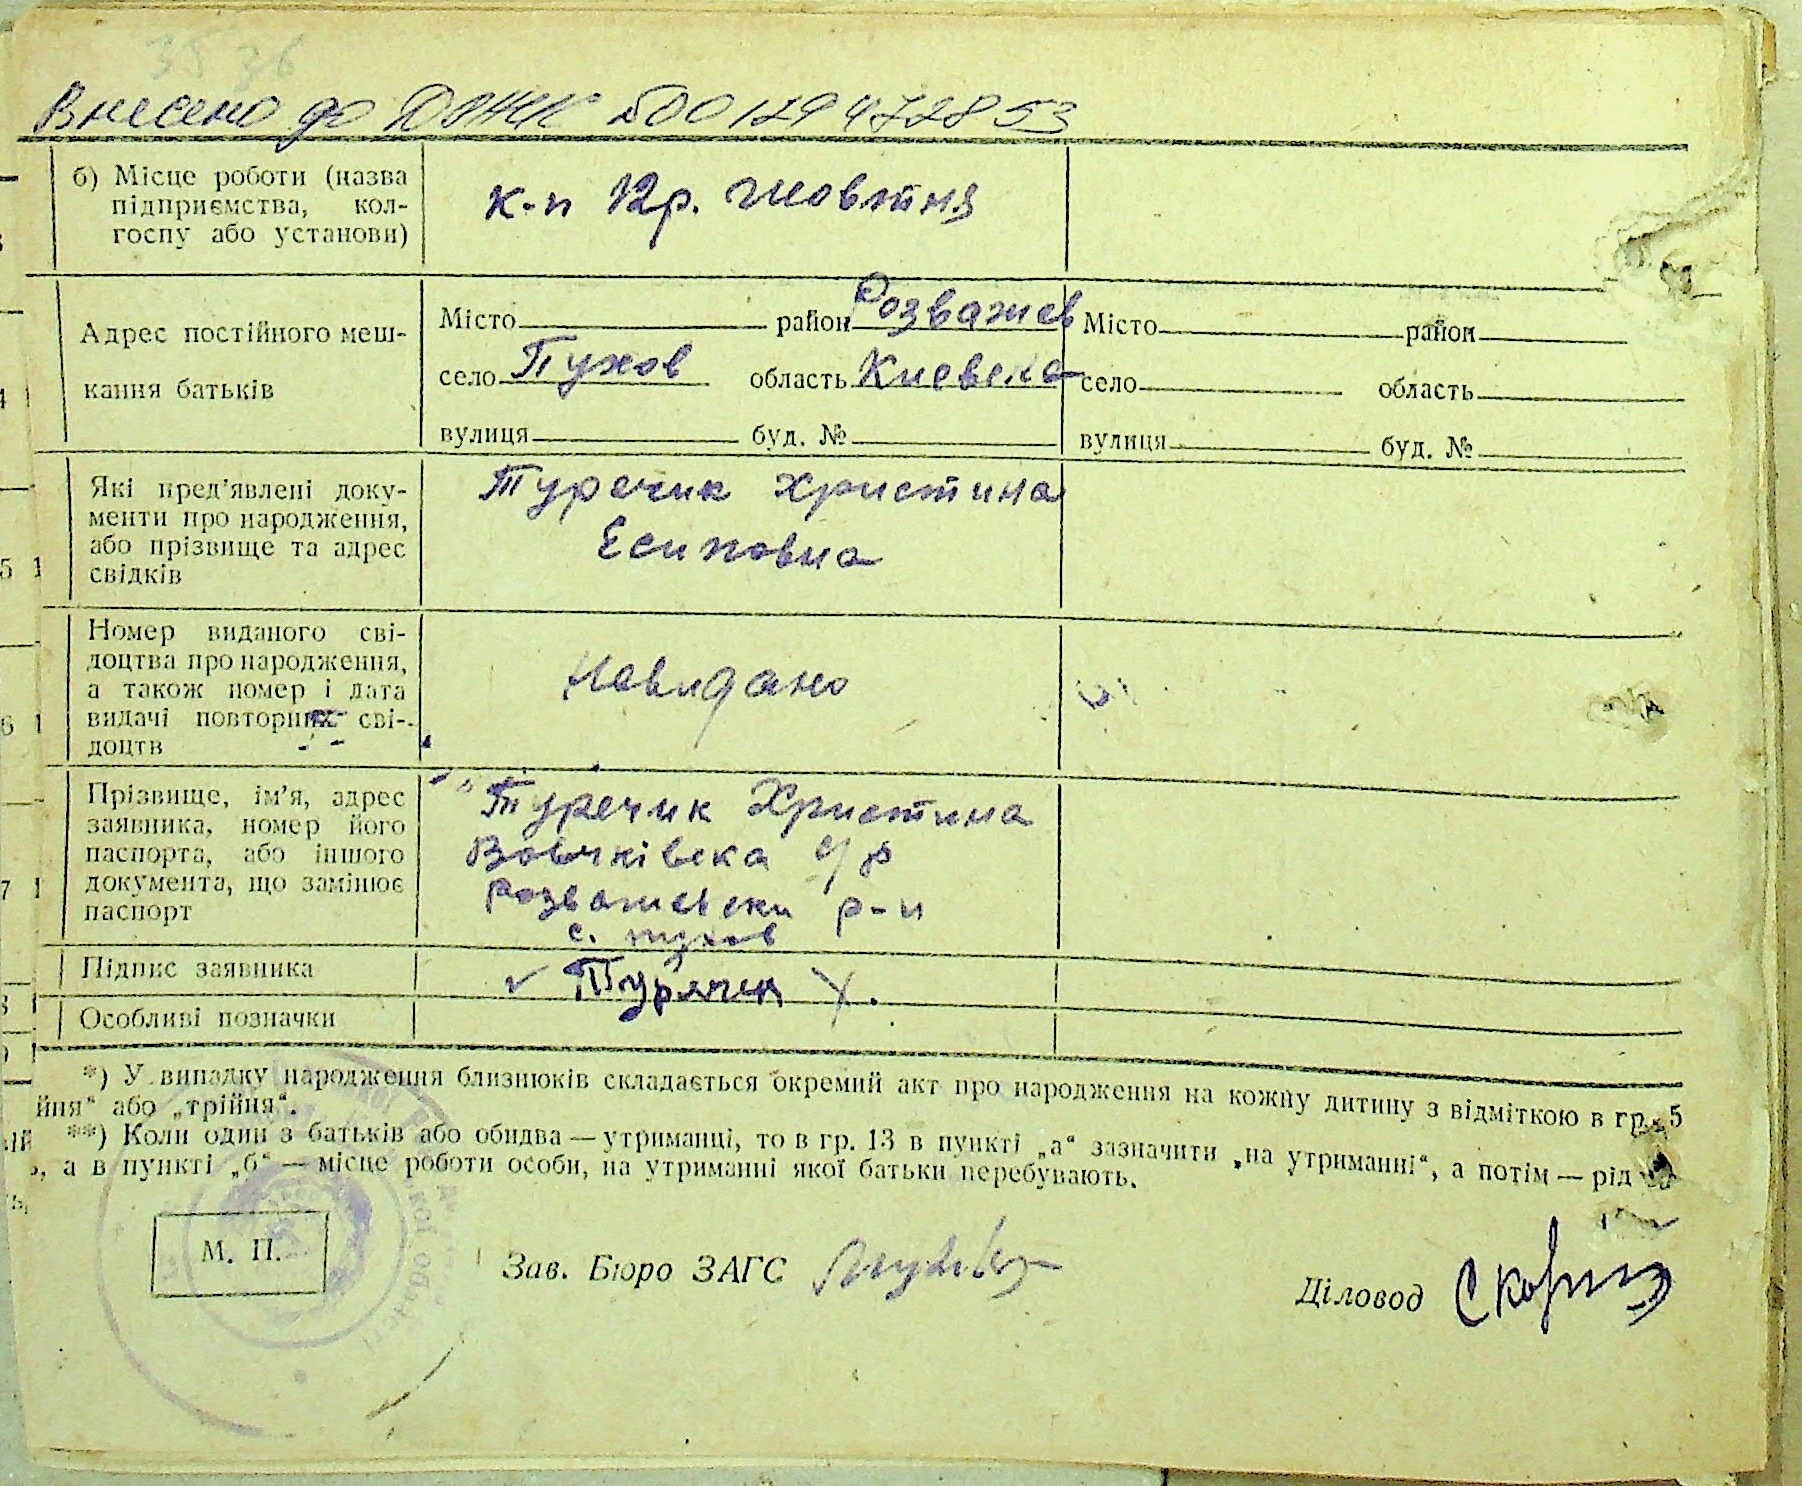 35 36
Внесено до ДРЖК №00129472853
б) Місце роботи (назва
підприємства, кол-
госпу або установи)
к-п 12р. жовтня
Адрес постійного меш-
кання батьків
Місто район Розважев
село Пухов область Киевска
вулиця буд. №
Місто район
село область
вулиця буд. №
Які пред’явлені доку-
менти про народження,
або прізвище та адрес
свідків
Туречик Христина
Есиповна
Номер виданого сві-
доцтва про народження,
а також номер і дата
видачі повторних сві-
доцтв
Невидано
Прізвище, ім’я, адрес
заявника, номер його
паспорта, або іншого
документа, що замінює
паспорт
Туречик Христина
Вовчківска с/р
Розважевски р-н
с. пухов
Підпис заявника
Турячик Х.
Особливі позначки
*) У випадку народження близнюків складається окремий акт про народження на кожну дитину з відміткою в гр. 5
йня“ або „трійня“.
**) Коли один з батьків або обидва — утриманці, то в гр. 13 в пункті „а“ зазначити „на утриманні“, а потім — рід
, а в пункті „б“ — місце роботи особи, на утриманні якої батьки перебувають.
М. П.
Зав. Бюро ЗАГС
Діловод